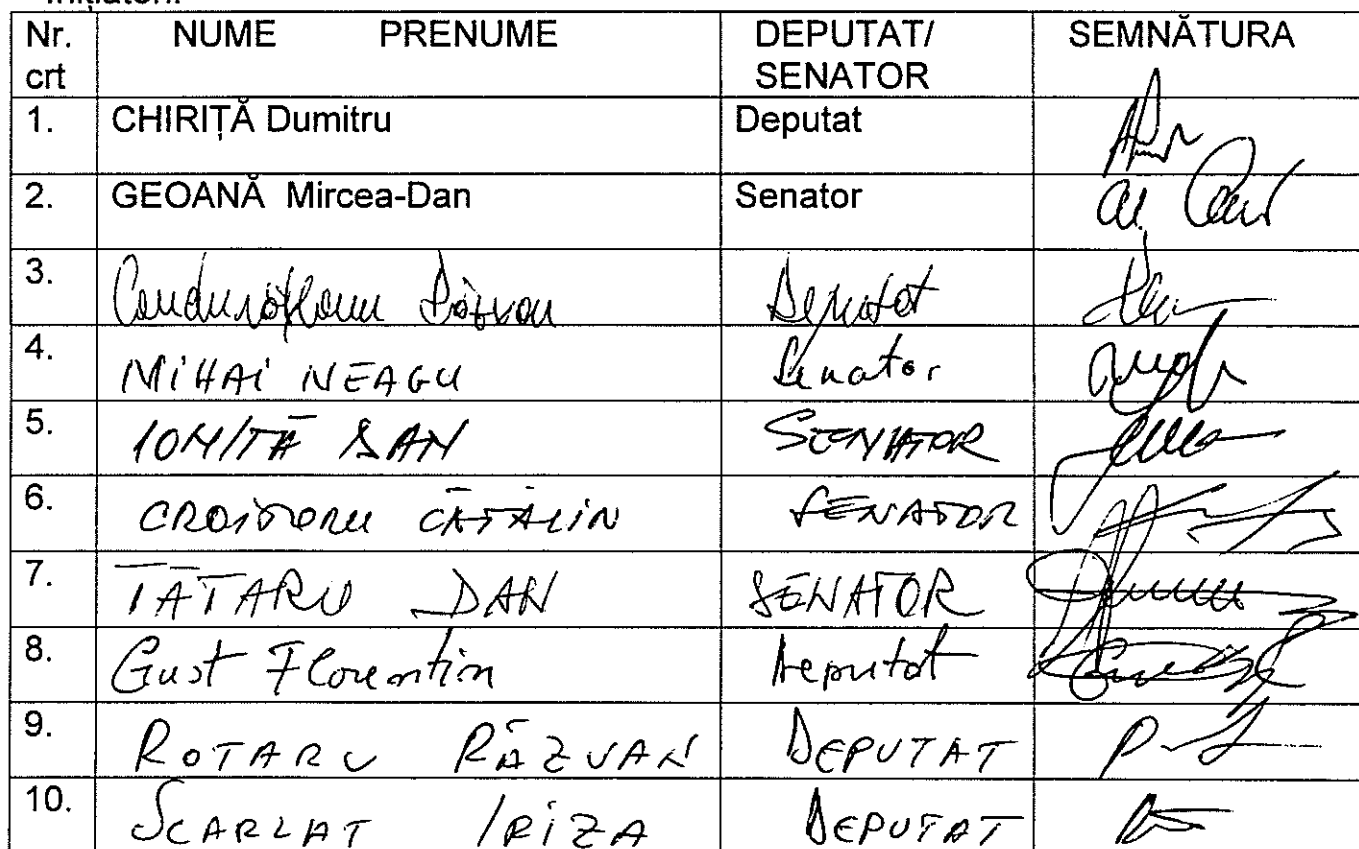 Inițiatori:
Nr. crt NUME PRENUME DEPUTAT/ SENATOR SEMNĂTURA
1. CHIRIȚĂ Dumitru Deputat
2. GEOANĂ Mircea-Dan Senator
3. Deputat
4. MIHAI NEAGU Senator
5. IONIȚĂ DAN SENATOR
6. CROITORU CĂTĂLIN SENATOR
7. TĂTARU DAN SENATOR
8. Gust Florentin Deputat
9. ROTARU RĂZVAN DEPUTAT
10. SCARLAT IRIZA DEPUTAT